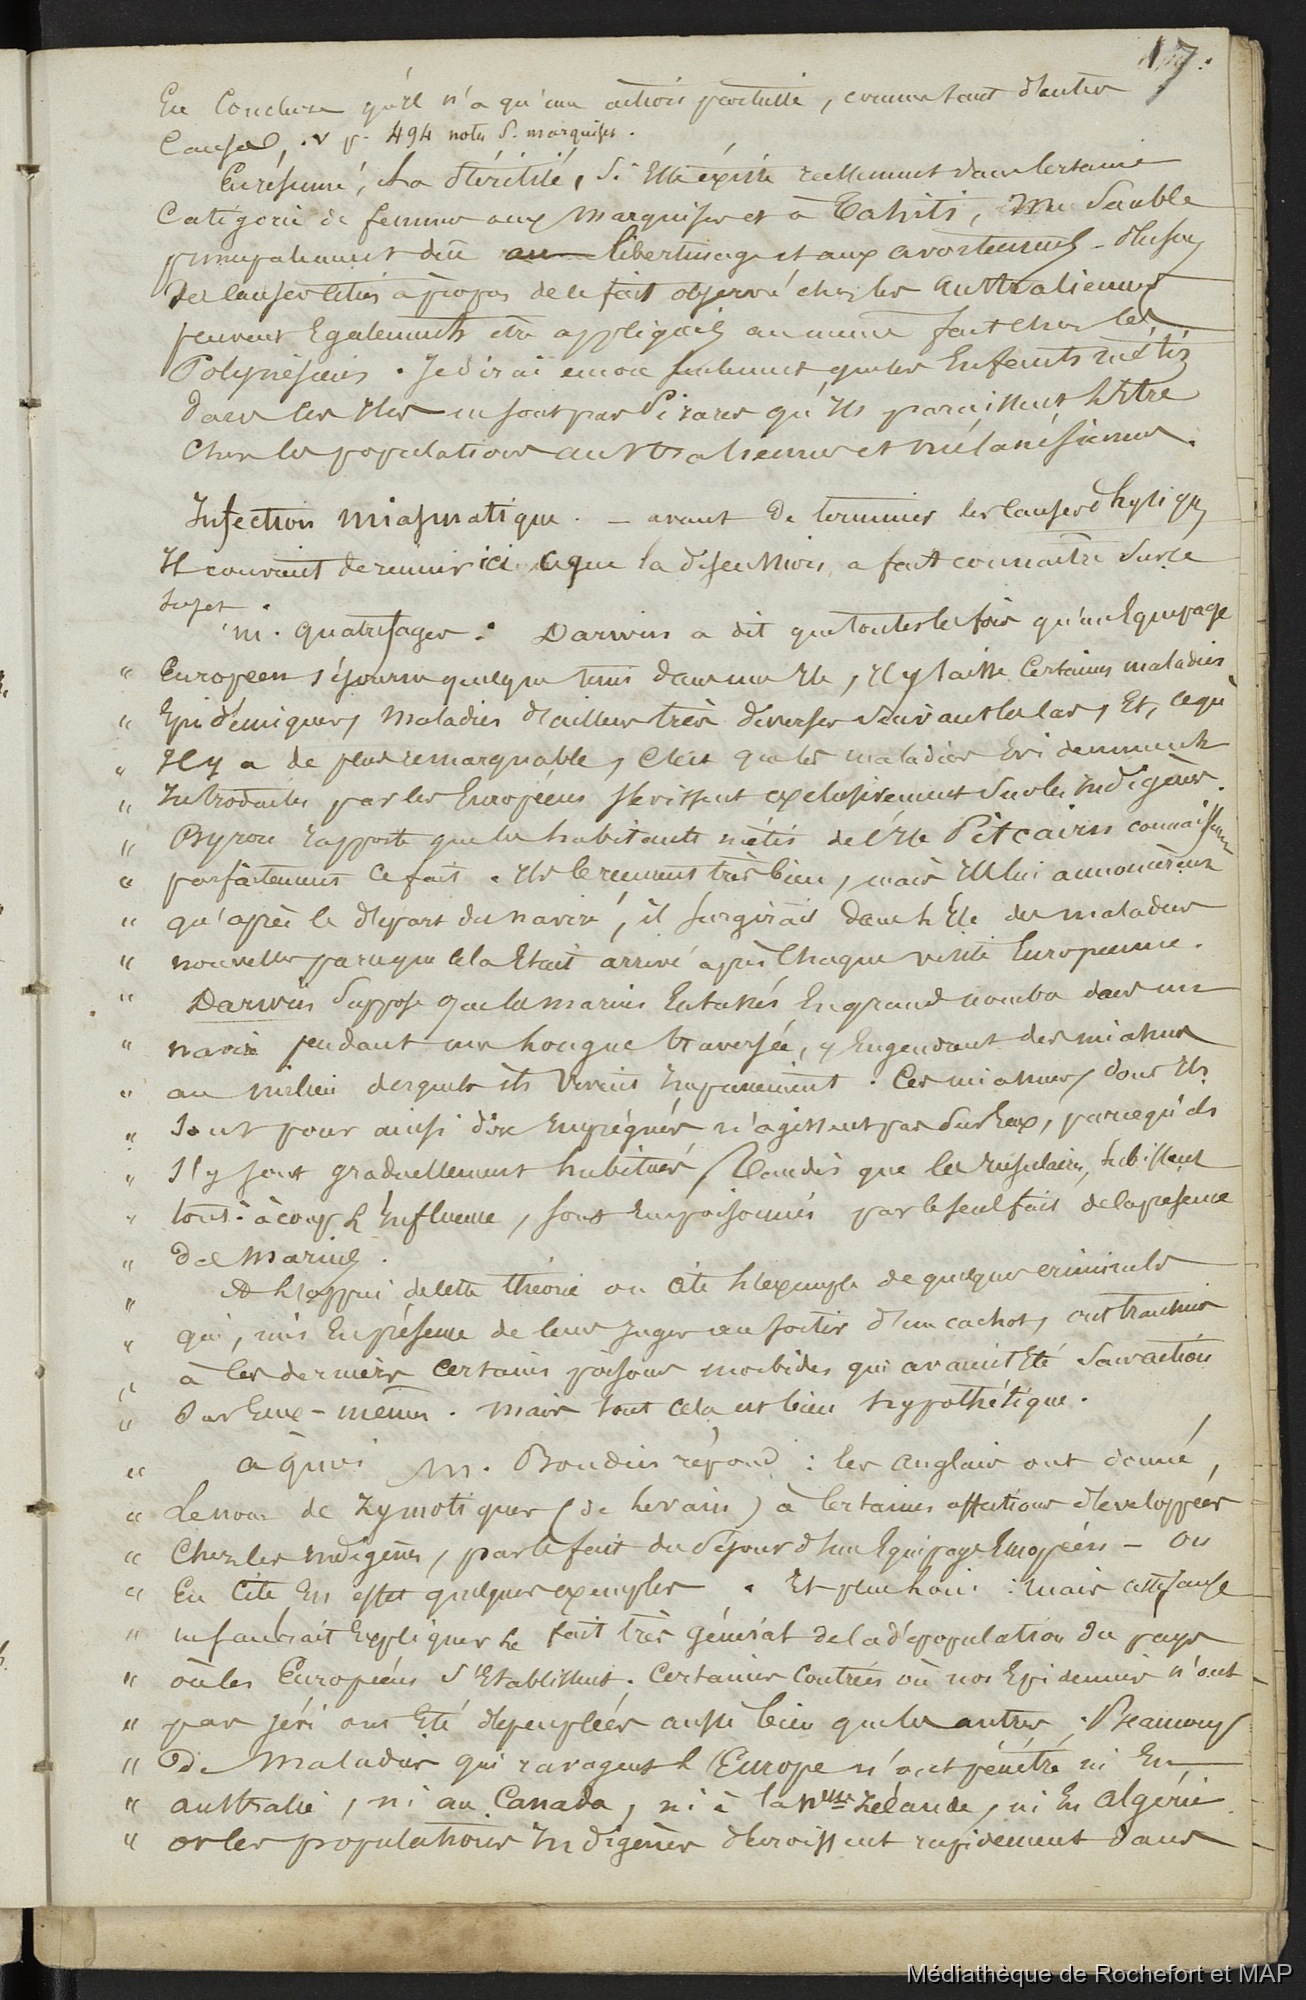 17.
En conclure qu'il n'a qu'une action partielle, comme tant d'autres
Causes, . v p. 494 notes S. marquises.
En résumé, La stérilité, Si Elle éxiste réellement dans Certaine
Catégorie de femmes aux Marquises et à Tahiti, Me Semble
principalement due au libertinage et aux avortements - plusieurs
Des Causes Citées à propos de ce fait observé chez les Australiennes
peuvent Egalement être appliquées au même fait chez les
Polynésiens. Je dirai encore seulement que les Enfants métis
Dans les Iles ne sont pas Si rares qu'Ils paraissent L'être
Chez les populations australiennes et mélanésiennes.
Infection miasmatique. - avant De terminer les Causes Physiques
Il convient de réunir ici ce que la discussion a fait connaître Sur ce
Sujet.
M. Quatrefages : Darwin a dit que toutes les fois qu'un Equipage
" Européen séjourne quelque tems dans une Ile, Il y laisse Certaines maladies
" Epidémiques, Maladies d'ailleurs très diverses Suivant les Cas, Et, ce qu'
" Il y a de plus remarquable, C'est que les maladies Evidemment
" Introduites par les Européens sévissent exclusivement Sur les Indigènes.
" Byron rapporte que les habitants métis de l'Ile Pitcairn connaissaient
" parfaitement Ce fait. Ils le reçurent très bien, mais Ils lui annoncèrent
" qu'après le départ du navire, il surgirait Dans L'Ile des maladies
" nouvelles parceque Cela Etait arrivé après Chaque visite Européenne.
" Darwin Suppose que les marins Entassés En grand nombre dans un
" navire pendant une Longue traversée, y Engendrent des miasmes
" au milieu desquels ils vivent Impunément. Ces miasmes, dont Ils
" Sont pour ainsi dire Imprégnés, n'agissent pas Sur Eux, parcequ'ils
" S'y sont graduellement habitués, Tandis que les Insulaires, Subissant
" tout-à-coup L'Influence, sont Empoisonnés par le seul fait de la présence
" Des Marins.
" A L'appui de cette théorie on cite L'exemple de quelques criminels
" qui, mis En présence de leurs Juges au sortir d'un cachot, ont transmis
" à Ces derniers Certains poisons morbides qui avaient Eté Sans action
" Sur Eux-mêmes. Mais tout cela est bien hypothétique.
" à quoi M. Boudin répond : les Anglais ont donné,
" Le nom de Zymotiques (de Levain) à Certaines affections développées
" Chez les Indigènes, par le fait du Séjour d'un Equipage Européen - On
" En Cite En effet quelques exemples. Et plus Loin : Mais cette Cause
" ne saurait Expliquer Le fait très général de la dépopulation Du pays
" où les Européens S'Etablissent. Certaines Contrées où nos Epidémies n'ont
" pas sévi ont Eté dépeuplées aussi bien que les autres. Beaucoup
" De Maladies qui ravagent L'Europe n'ont pénétré ni En
" australie, ni au Canada, ni à la Nlle Zélande, ni En Algérie
" or les populations Indigènes décroissent rapidement dans
Médiathèque de Rochefort et MAP